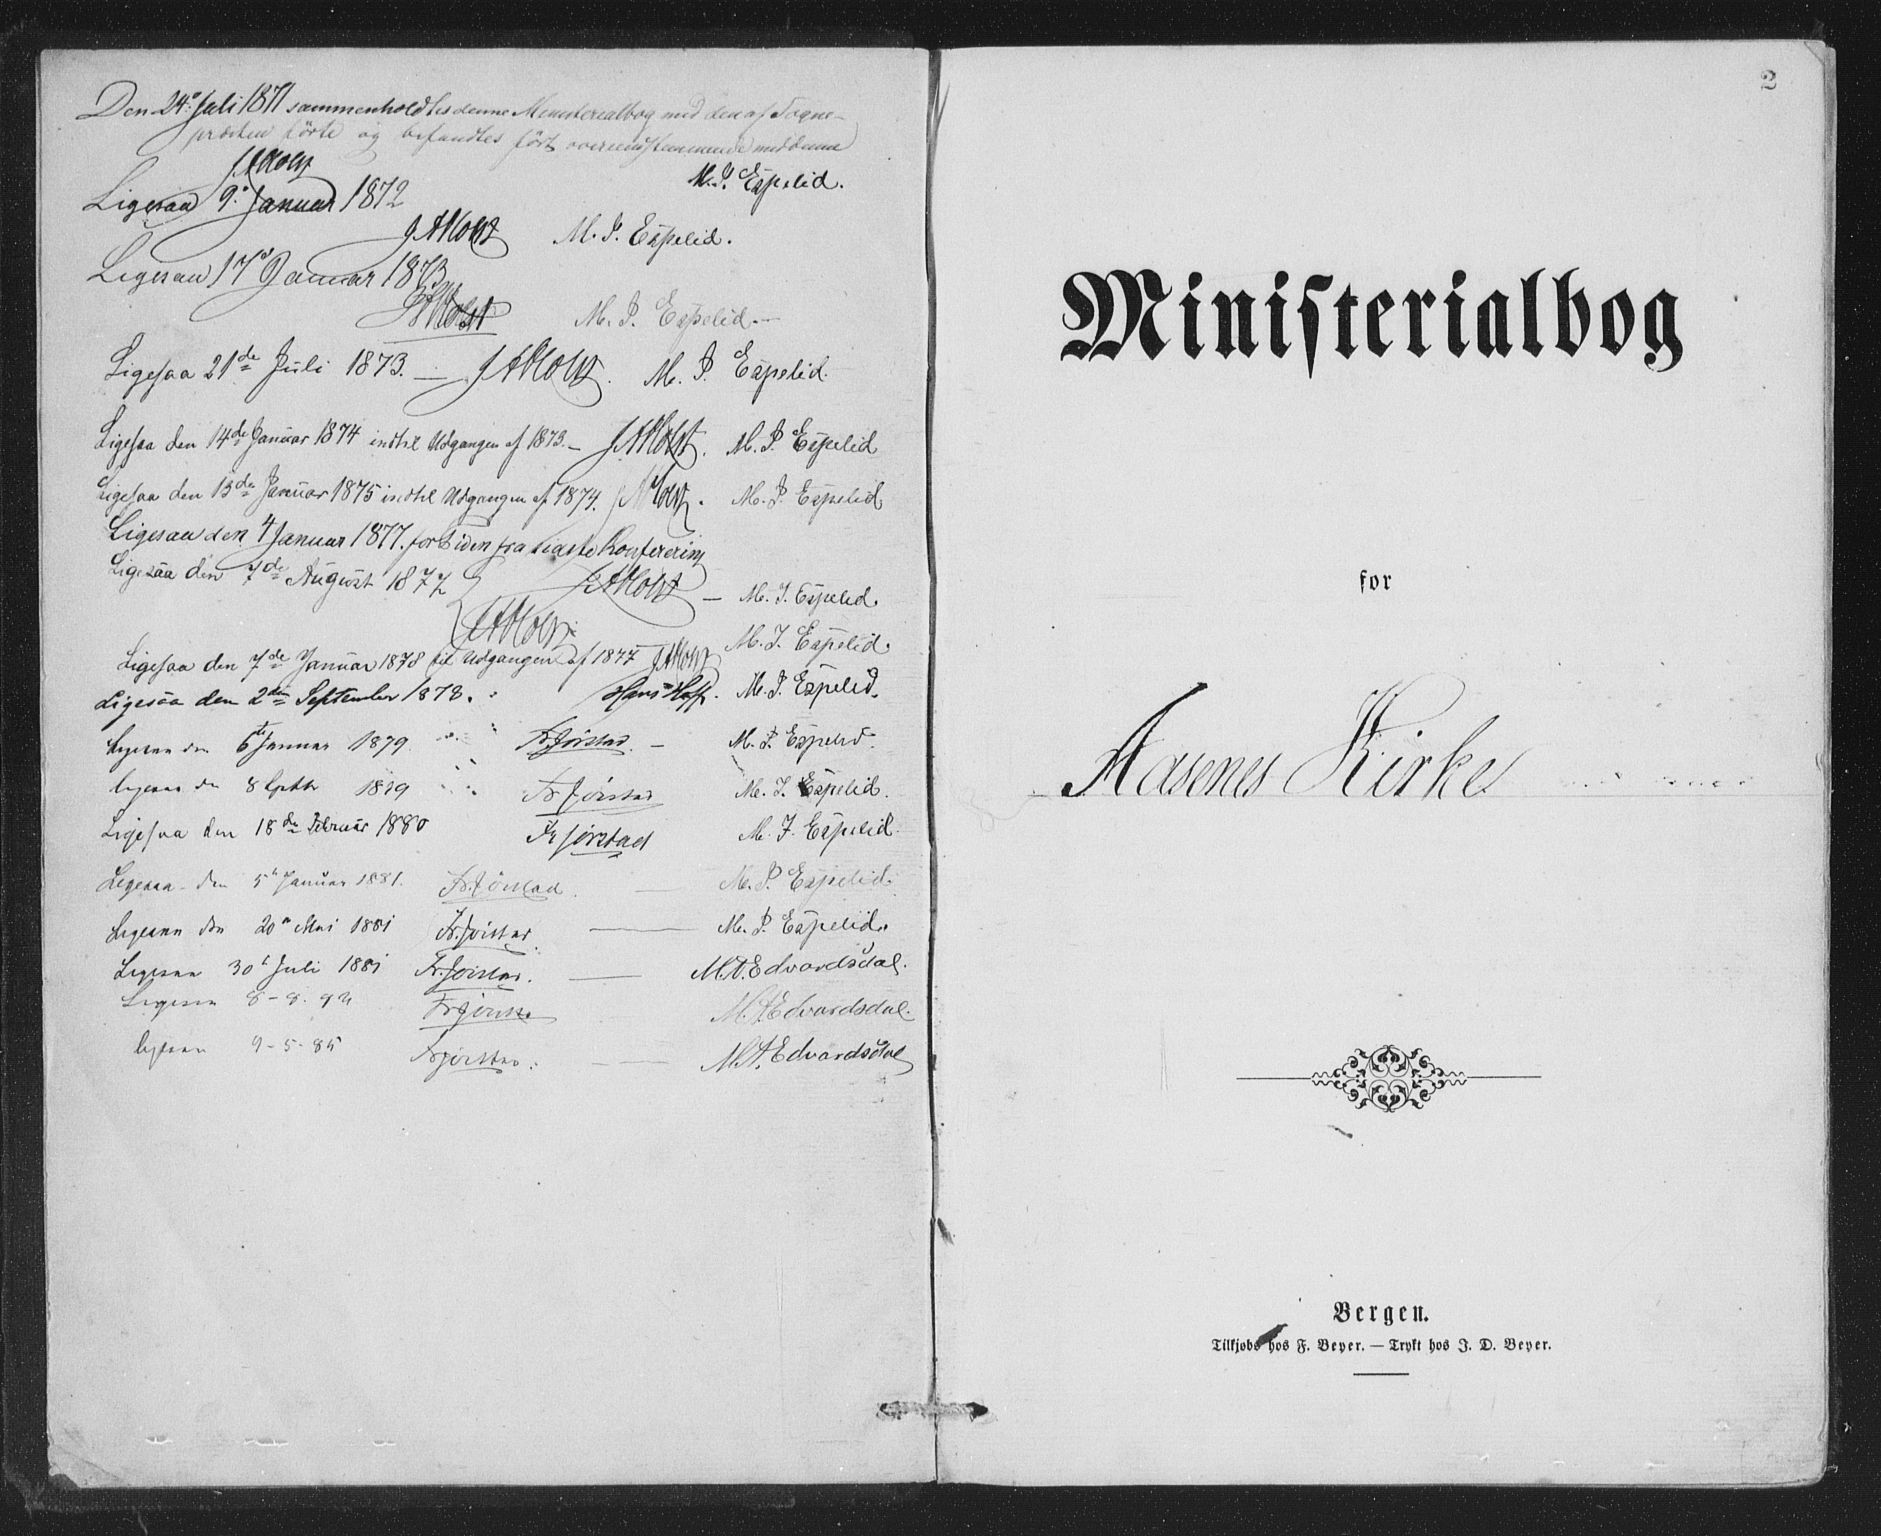 Den 24de Juli 1871 sammenholdtes denne Ministerialbog med den af Sogne-
præsten førte og befandtes ført overeensstemmende med denne
J A Holst M. J. Espelid.
Ligesaa 9de Januar 1872
J A Holst M. J. Espelid.
Ligesaa 17de Januar 1873
J A Holst M. J. Espelid. —
Ligesaa 21de Juli 1873. — J A Holst. M. J. Espelid.
Ligesaa den 14de Januar 1874 indtil Udgangen af 1873. — J A Holst. M. J. Espelid
Ligesaa den 13de Januar 1875 indtil Udgangen af 1874. J A Holst. M. J. Espelid
Ligesaa den 4 Januar 1877. for Tiden fra sidste Konferering
J A Holst — M. J. Espelid.
Ligesaa den 7de August 1877
J A Holst M. J. Espelid.
Ligesaa den 7de Januar 1878 til Udgangen af 1877 J A Holst
Ligesaa den 2den September 1878. Hans M. J. Espelid.
Ligesaa den 6te Januar 1879 Fr Jørstad. — M. J. Espelid.
Ligesaa den 8 Septbr 1879 Fr Jørstad M. J. Espelid.
Ligesaa den 18de Februar 1880 Fr Jørstad M. J. Espelid.
Ligesaa den 5te Januar 1881. Fr. Jørstad. — M. J. Espelid.
Ligesaa den 20de Mai 1881 Fr. Jørstad. — M. J. Espelid.
Ligesaa 30te Juli 1881 Fr. Jørstad. — M. A. Edvardsdal.
Ligesaa Fr Jørstad M. A. Edvardsdal.
Ligesaa 9-5-85 Fr Jørstad. — M. A. Edvardsdal
2
Ministerialbog
for
Aasenes Kirke
Bergen.
Tilkjøbs hos F. Beyer. — Trykt hos J. D. Beyer.